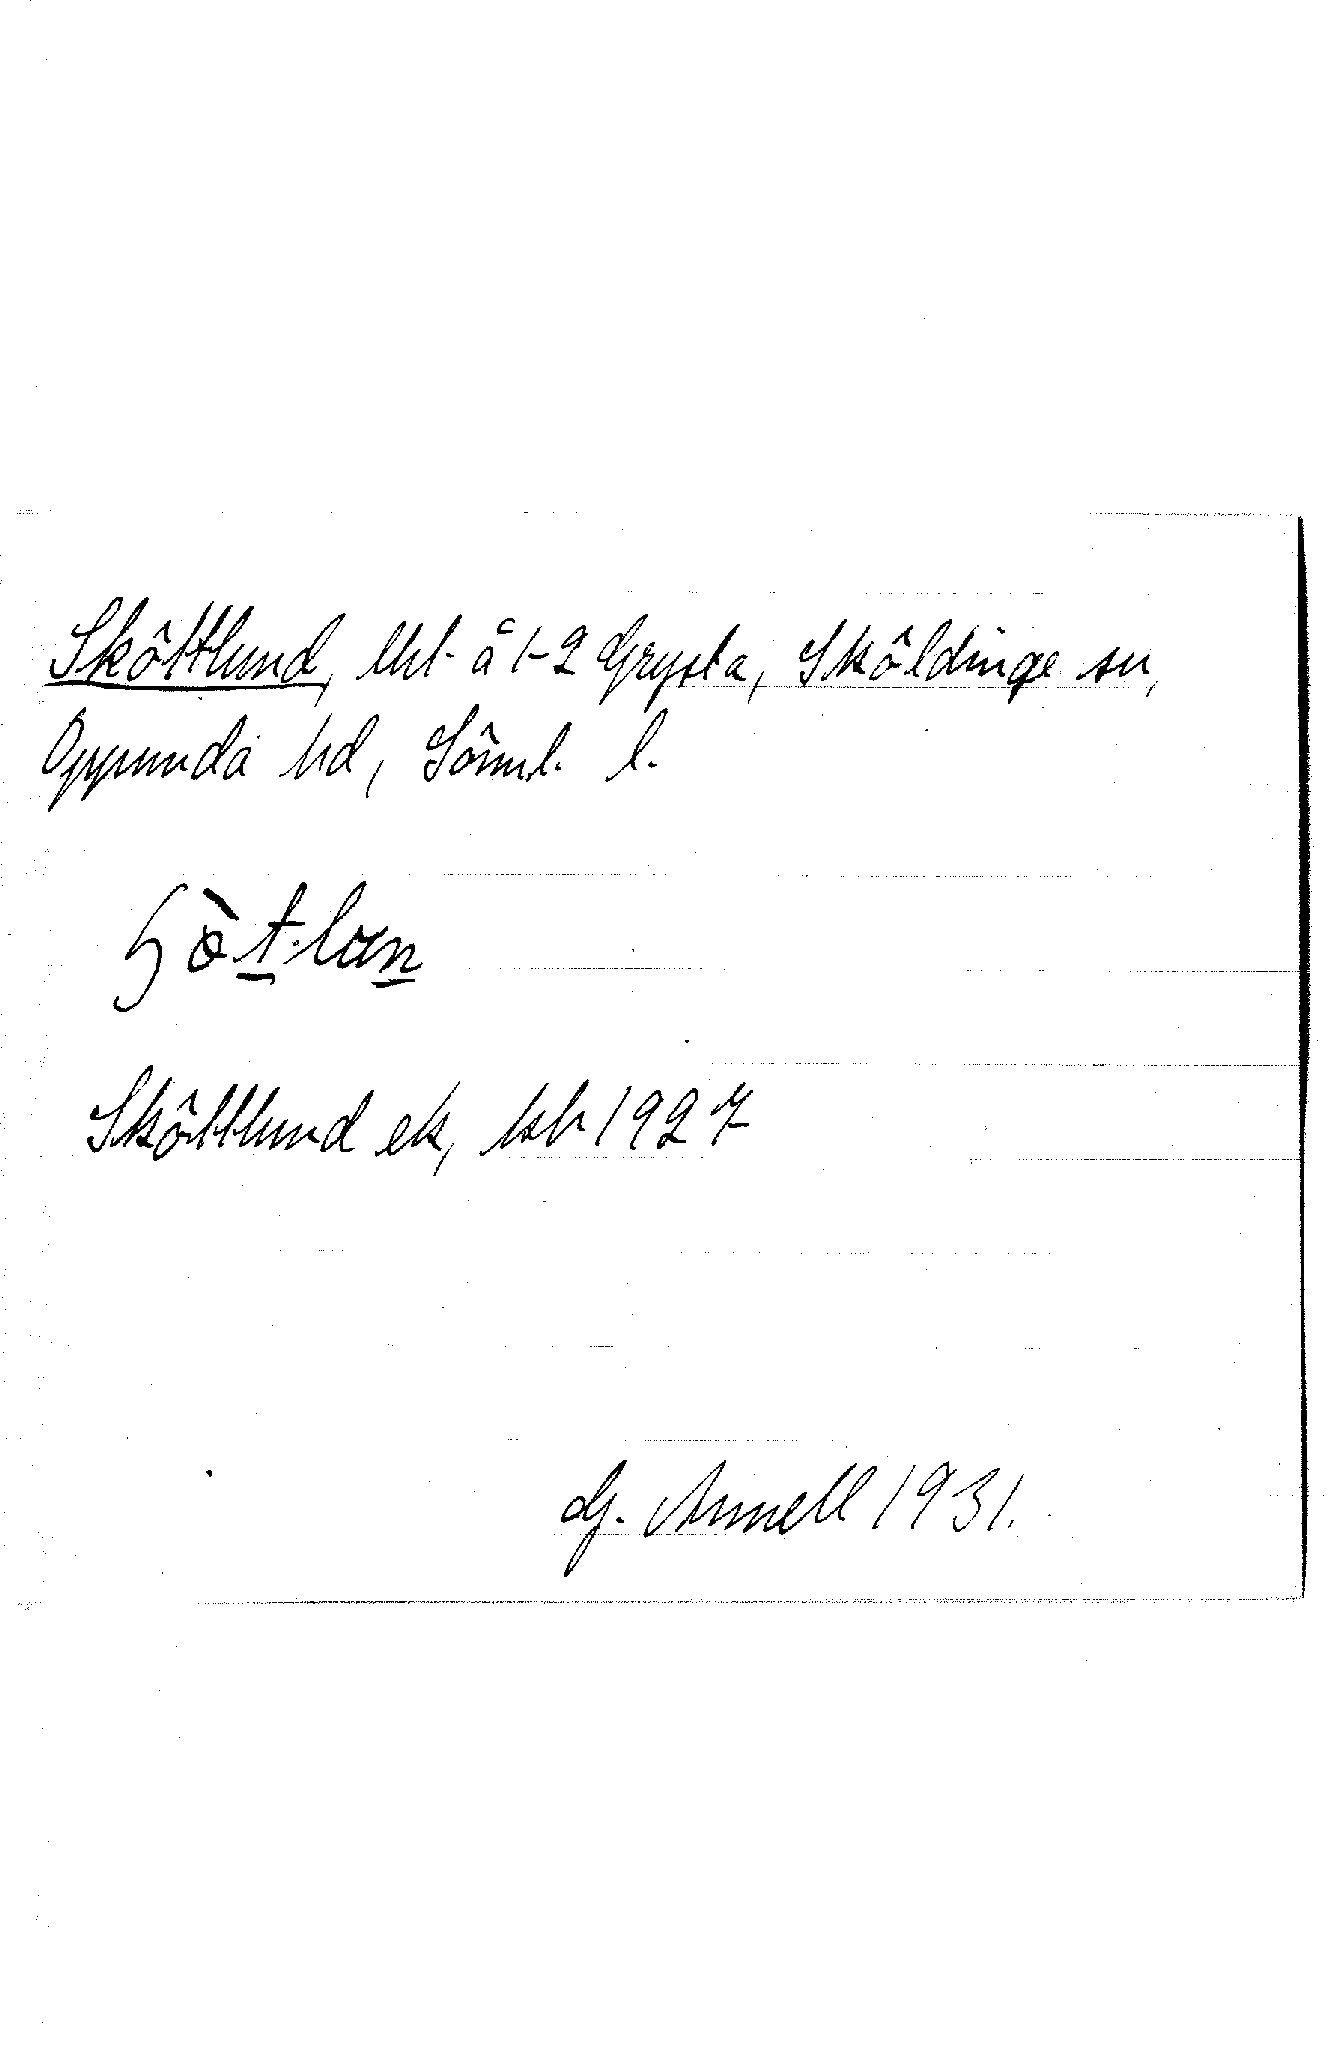 Sköttlund, lht å 1-2 Grysta, Sköldinge sn,
Oppunda hd, Söml. l.
Sköttlund ek, kb 1927
G. Annell 1931.